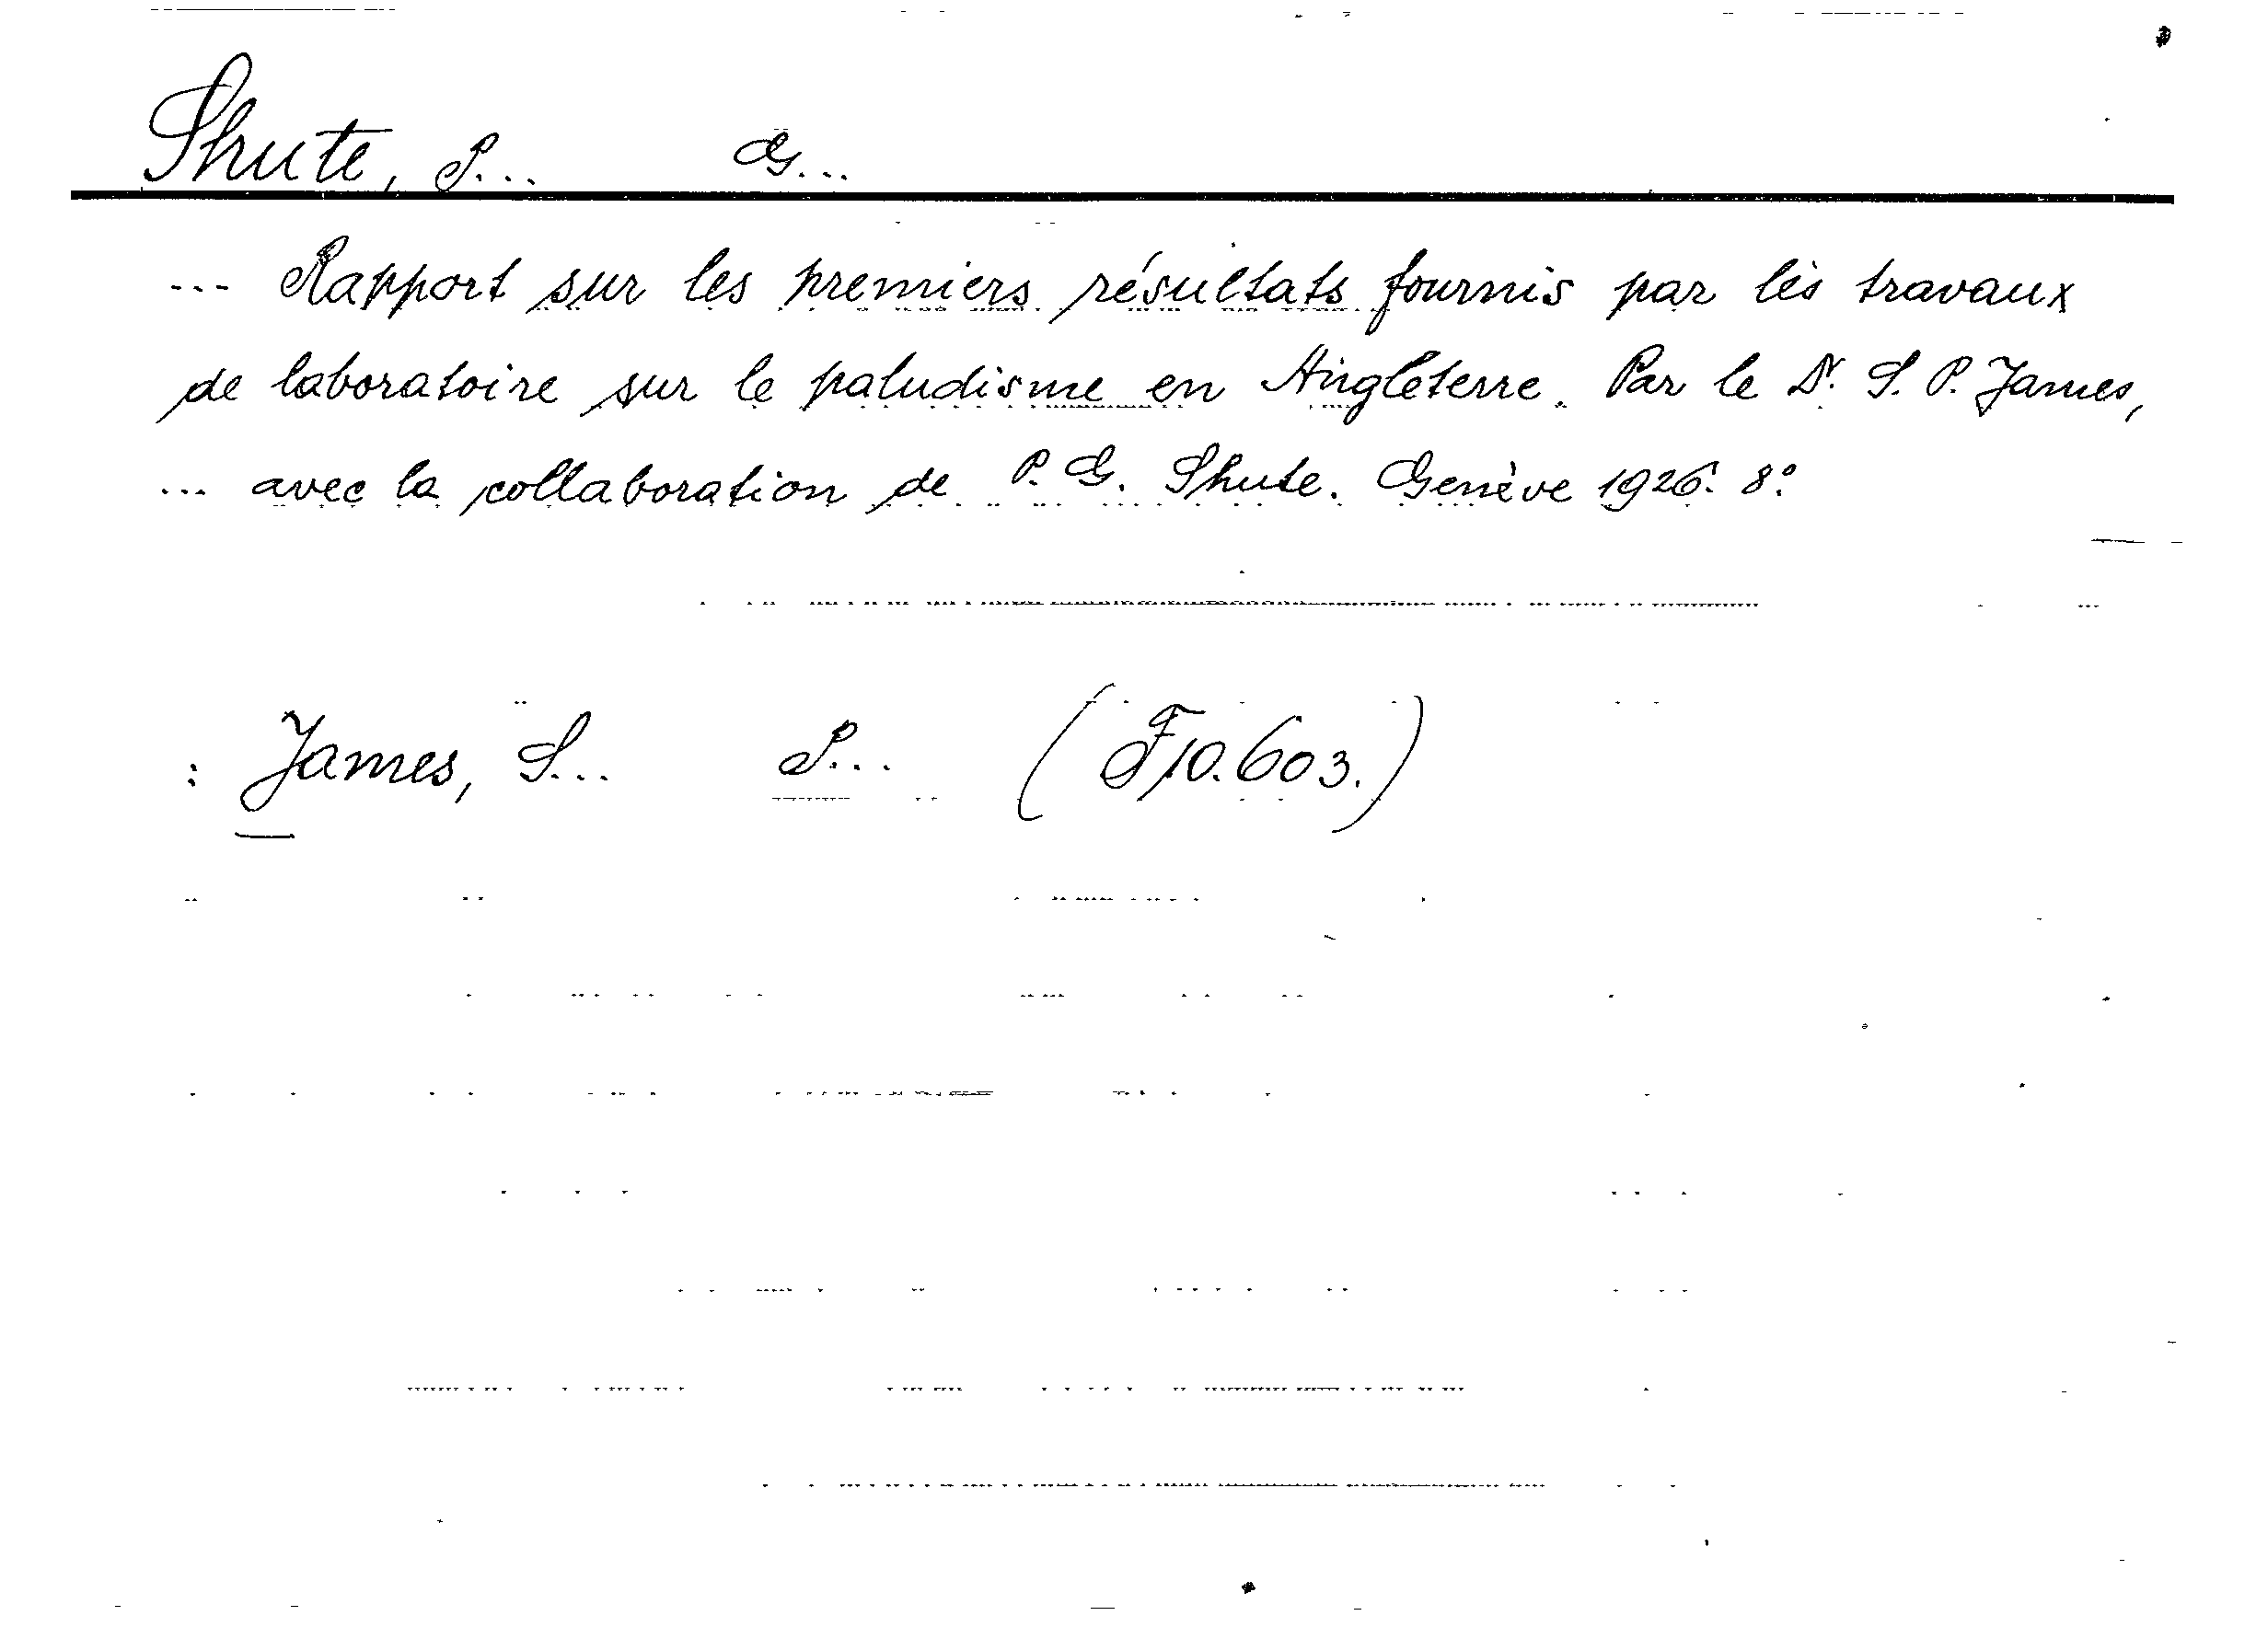 Shute, P... G...
--- Rapport sur les premiers résultats fournis par les travaux
de laboratoire sur le paludisme en Angleterre. Par le Dr. S. P. James,
... avec la collaboration de P. G. Shute. Genève 1926. 8°.
: James, S... P... (F10.603.)